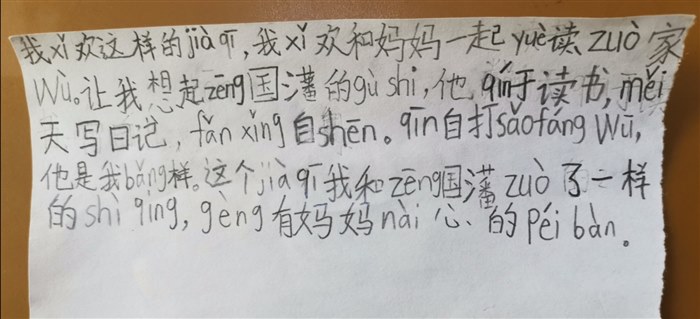 我xǐ欢这样的jià qī,我xǐ欢和妈妈一起yuè读zuò家
wù。让我想起zēng国潘的gù shi,他qín于读书,měi
天写日记,fǎn xǐng自shēn。qīn自打sǎo fáng wū,
他是我bǎng样。这个jià qī我和zēng国潘zuò了一样
的shì qing,gèng有妈妈nài心的péi bàn。